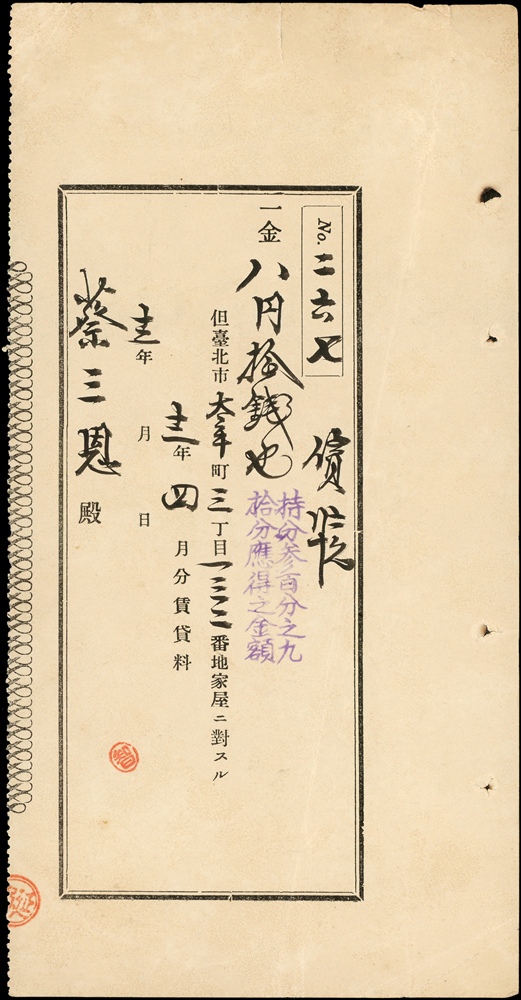 No. 二六七
一金 八円拾錢也
持分参百分之九
拾分應得之金額
但臺北市太平町三丁目一三二番地家屋ニ對スル
年四月分賃貸料
年 月 日
蔡三恩殿